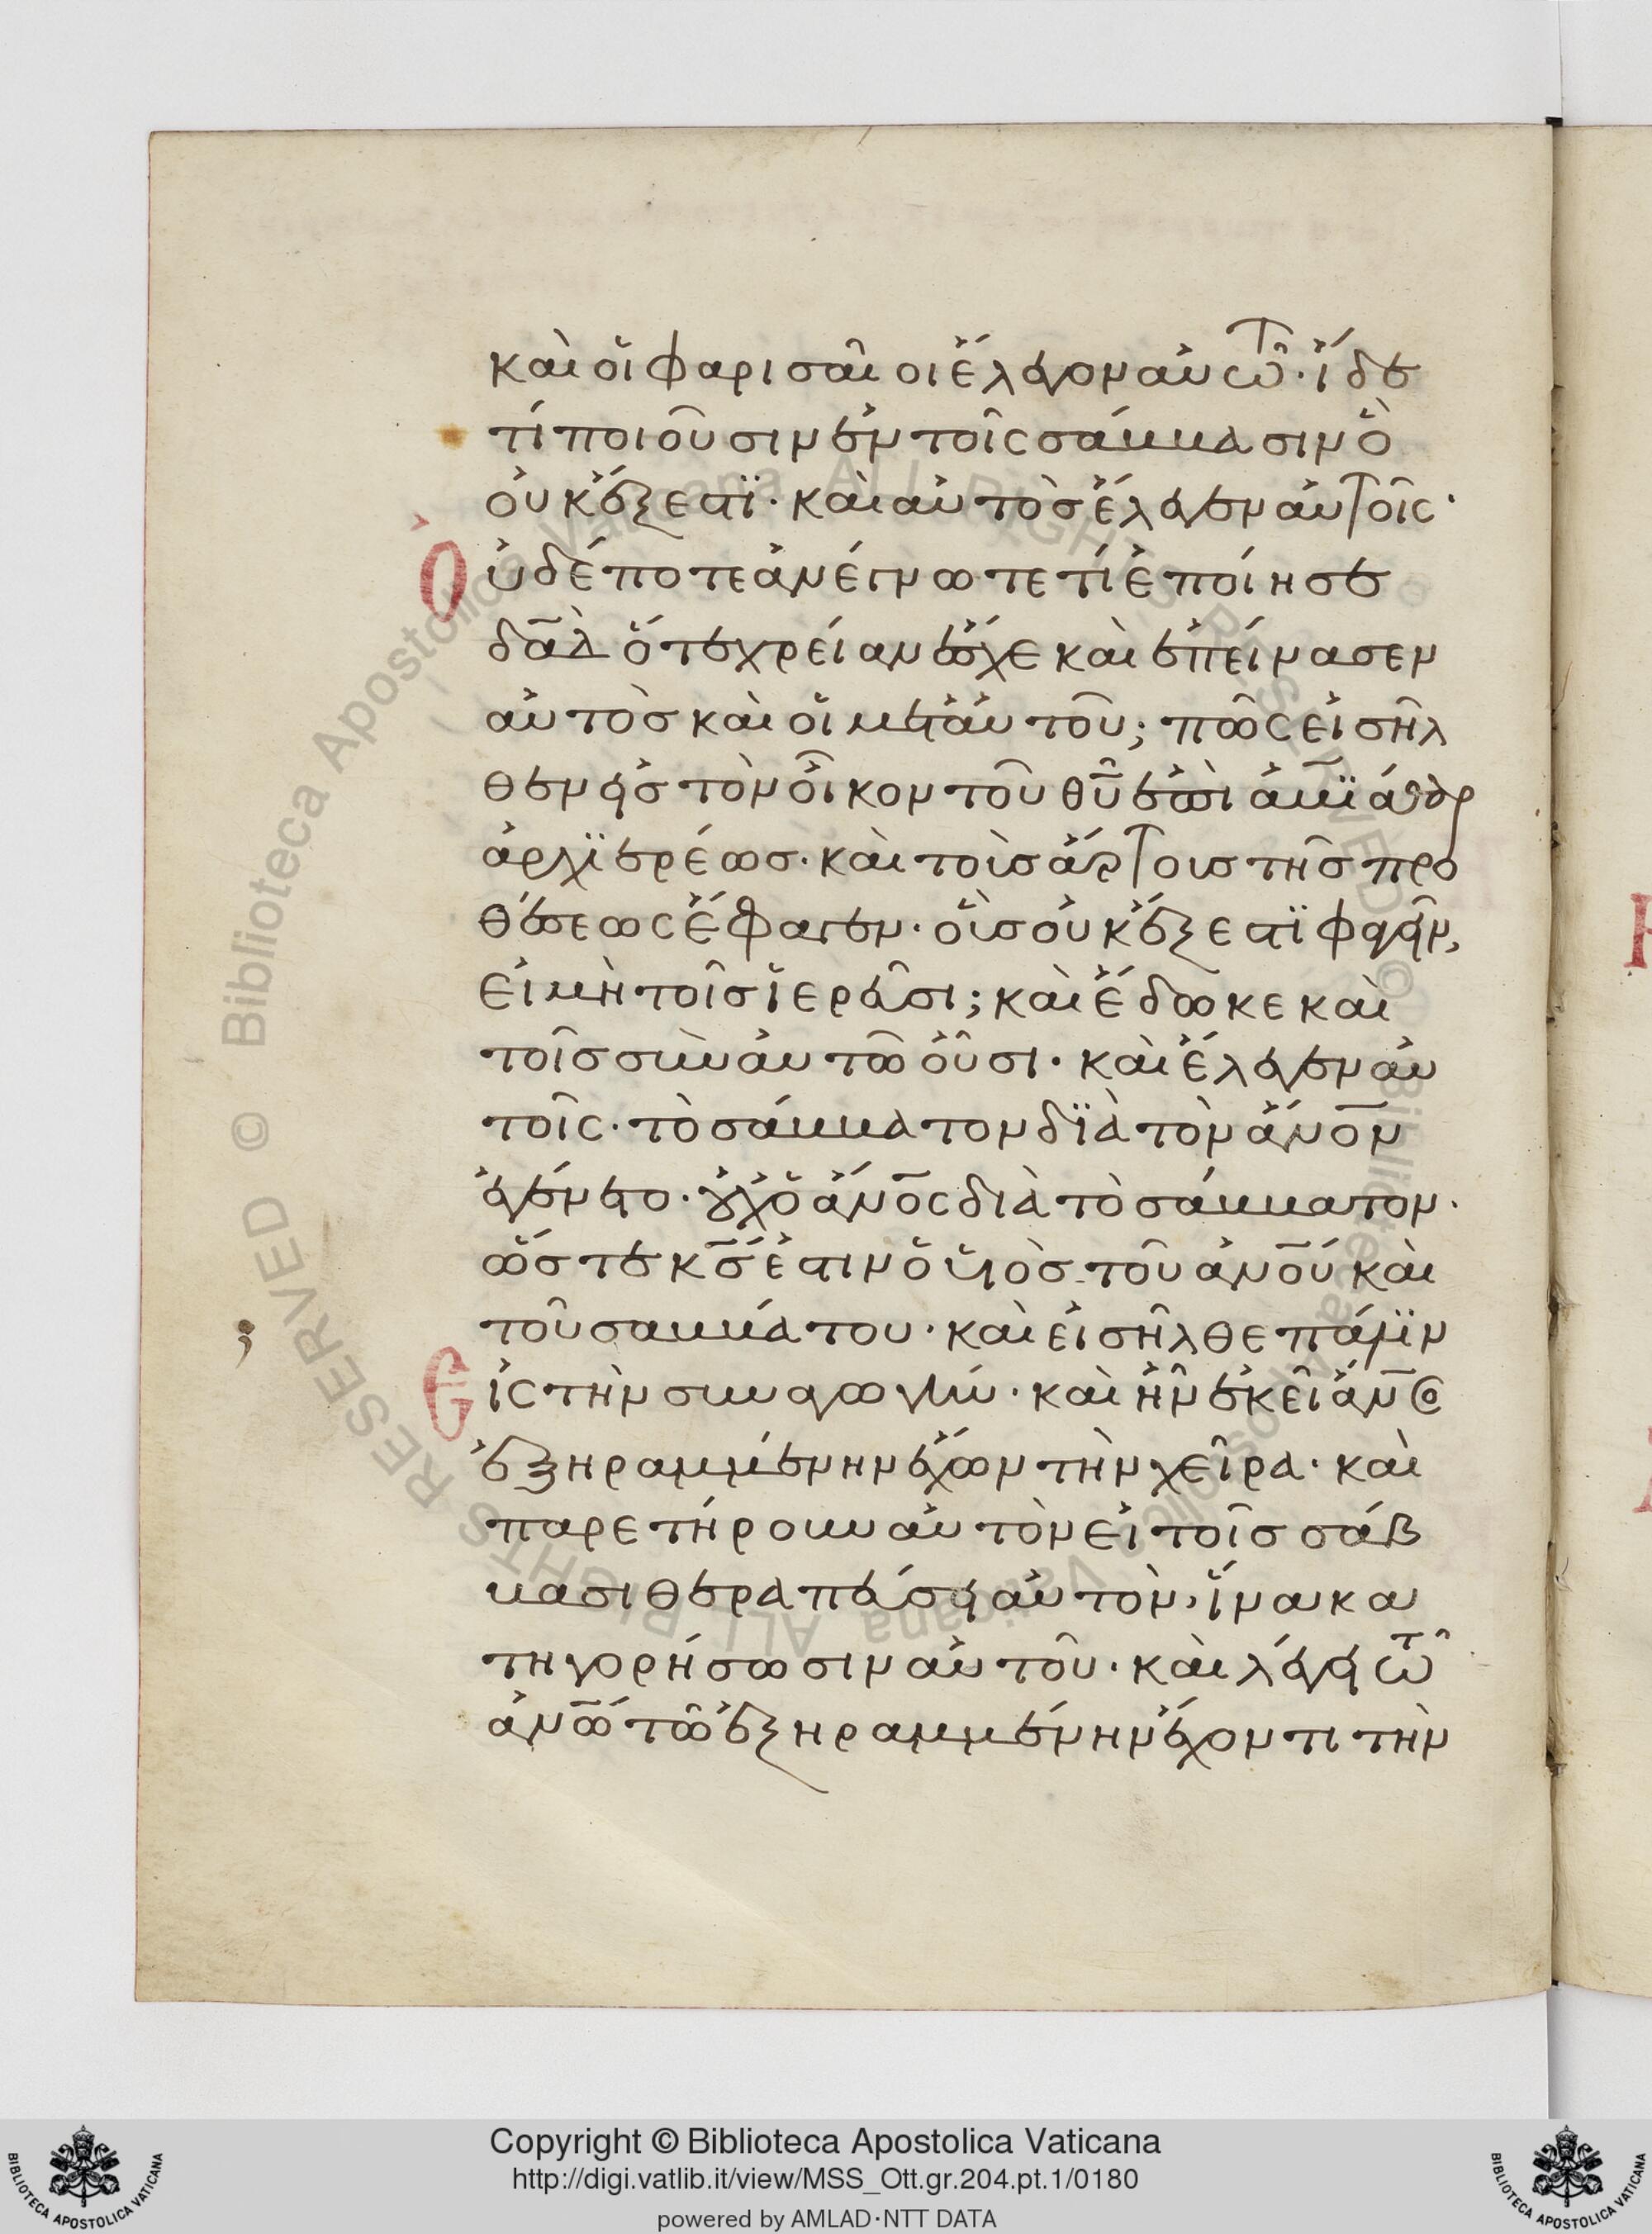 καὶ οἱ φαρισαῖοι ἔλεγον αὐτῶ· ἴδε
τί ποιοῦσιν ἐν τοῖς σάββασιν ὃ
οὐκ ἔξεστϊ· καὶ αὐτὸς ἔλεγεν αὐτοῖς·
Οὐδέποτε ἀνέγνωτε τί ἐποίησε
δᾱδ ὅτε χρείαν ἔσχε καὶ ἐπείνασεν
αὐτὸς καὶ οἱ μετ αὐτοῦ; πῶς εἰσῆλ
θεν εἰς τὸν οἶκον τοῦ θῡ ἐπὶ ἀβϊάθαρ
ἀρχϊερέως· καὶ τοὺς ἄρτους τῆς προ
θέσεως ἔφαγεν· οὓς οὐκ ἔξεστϊ φαγεῖν,
εἰ μὴ τοῖς ἱερεῦσι; καὶ ἔδωκε καὶ
τοῖς σὺν αὐτῶ οὖσι· καὶ ἔλεγεν αὐ
τοῖς· τὸ σάββατον δϊὰ τὸν ἄνο̄ν
ἐγένετο· οὐχ ὁ ἄνο̄ς διὰ τὸ σάββατον·
ὥστε κ̄ς ἐστιν ὁ υἱὸς τοῦ ἀνο̄υ καὶ
τοῦ σαββάτου· καὶ εἰσῆλθε πάλϊν
Εἰς τὴν συναγωγήν· καὶ ἦν ἐκεῖ ἄνο̄ς
ἐξηραμμένην ἔχων τὴν χεῖρα· καὶ
παρετήρουν αὐτὸν εἰ τοῖς σάβ
βασι θεραπεύσει αὐτόν, ἵνα κα
τηγορήσωσιν αὐτοῦ· καὶ λέγει τῶ
ἀνω̄ τῶ ἐξηραμμένην ἔχοντι τὴν
Copyright © Biblioteca Apostolica Vaticana
http://digi.vatlib.it/view/MSS_Ott.gr.204.pt.1/0180
powered by AMLAD·NTT DATA